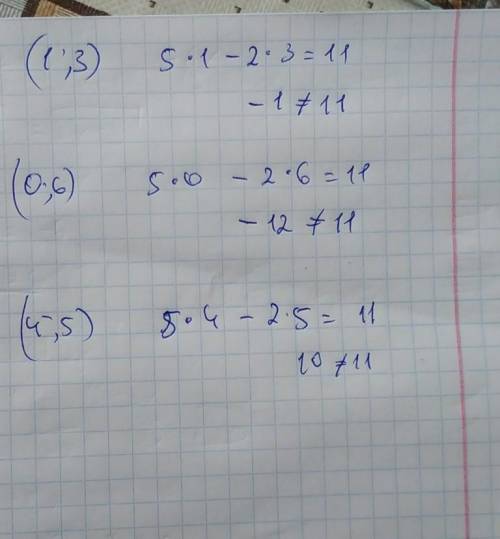 (1;3) 5·1 - 2·3 = 11
-1 ≠ 11
(0;6) 5·0 - 2·6 = 11
-12 ≠ 11
(4;5) 5·4 - 2·5 = 11
10 ≠ 11